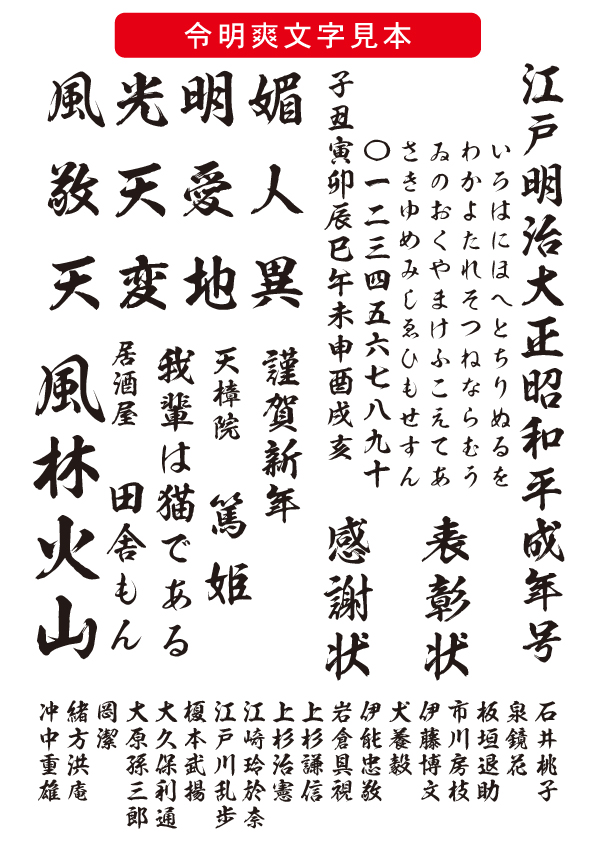 令明爽文字見本
江戸明治大正昭和平成年号
いろはにほへとちりぬるを
わかよたれそつねならむう
ゐのおくやまけふこえてあ
さきゆめみしゑひもせすん
〇一二三四五六七八九十
子丑寅卯辰巳午未申酉戌亥
表彰状
感謝状
媚人異
明愛地
光天変
風敬天
謹賀新年
天樟院 篤姫
我輩は猫である
居酒屋 田舎もん
風林火山
石井桃子
泉鏡花
板垣退助
市川房枝
伊藤博文
犬養毅
伊能忠敬
岩倉具視
上杉謙信
上杉治憲
江崎玲於奈
江戸川乱歩
榎本武揚
大久保利通
大原孫三郎
岡潔
緒方洪庵
冲中重雄